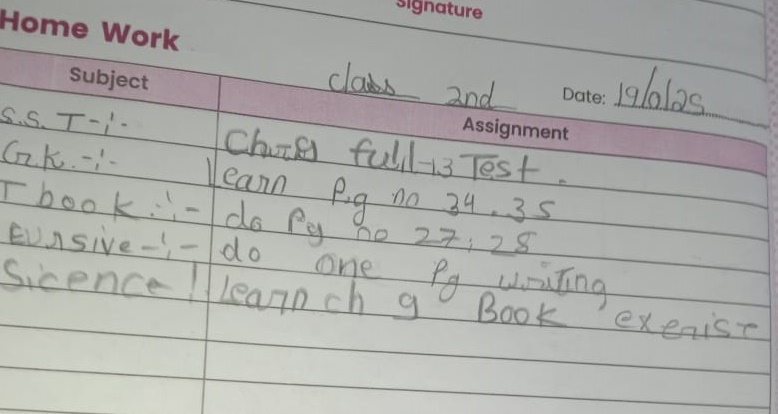 Signature
Home Work
class 2nd Date: 19/0/25
Subject Assignment
S.S. T -:- full 13 Test.
G.K. -:- learn P.g no 34. 35
T book :- do Pg no 27, 28
Eursive -:- do one Pg writing
Sicence ! learn ch 9 Book exerist